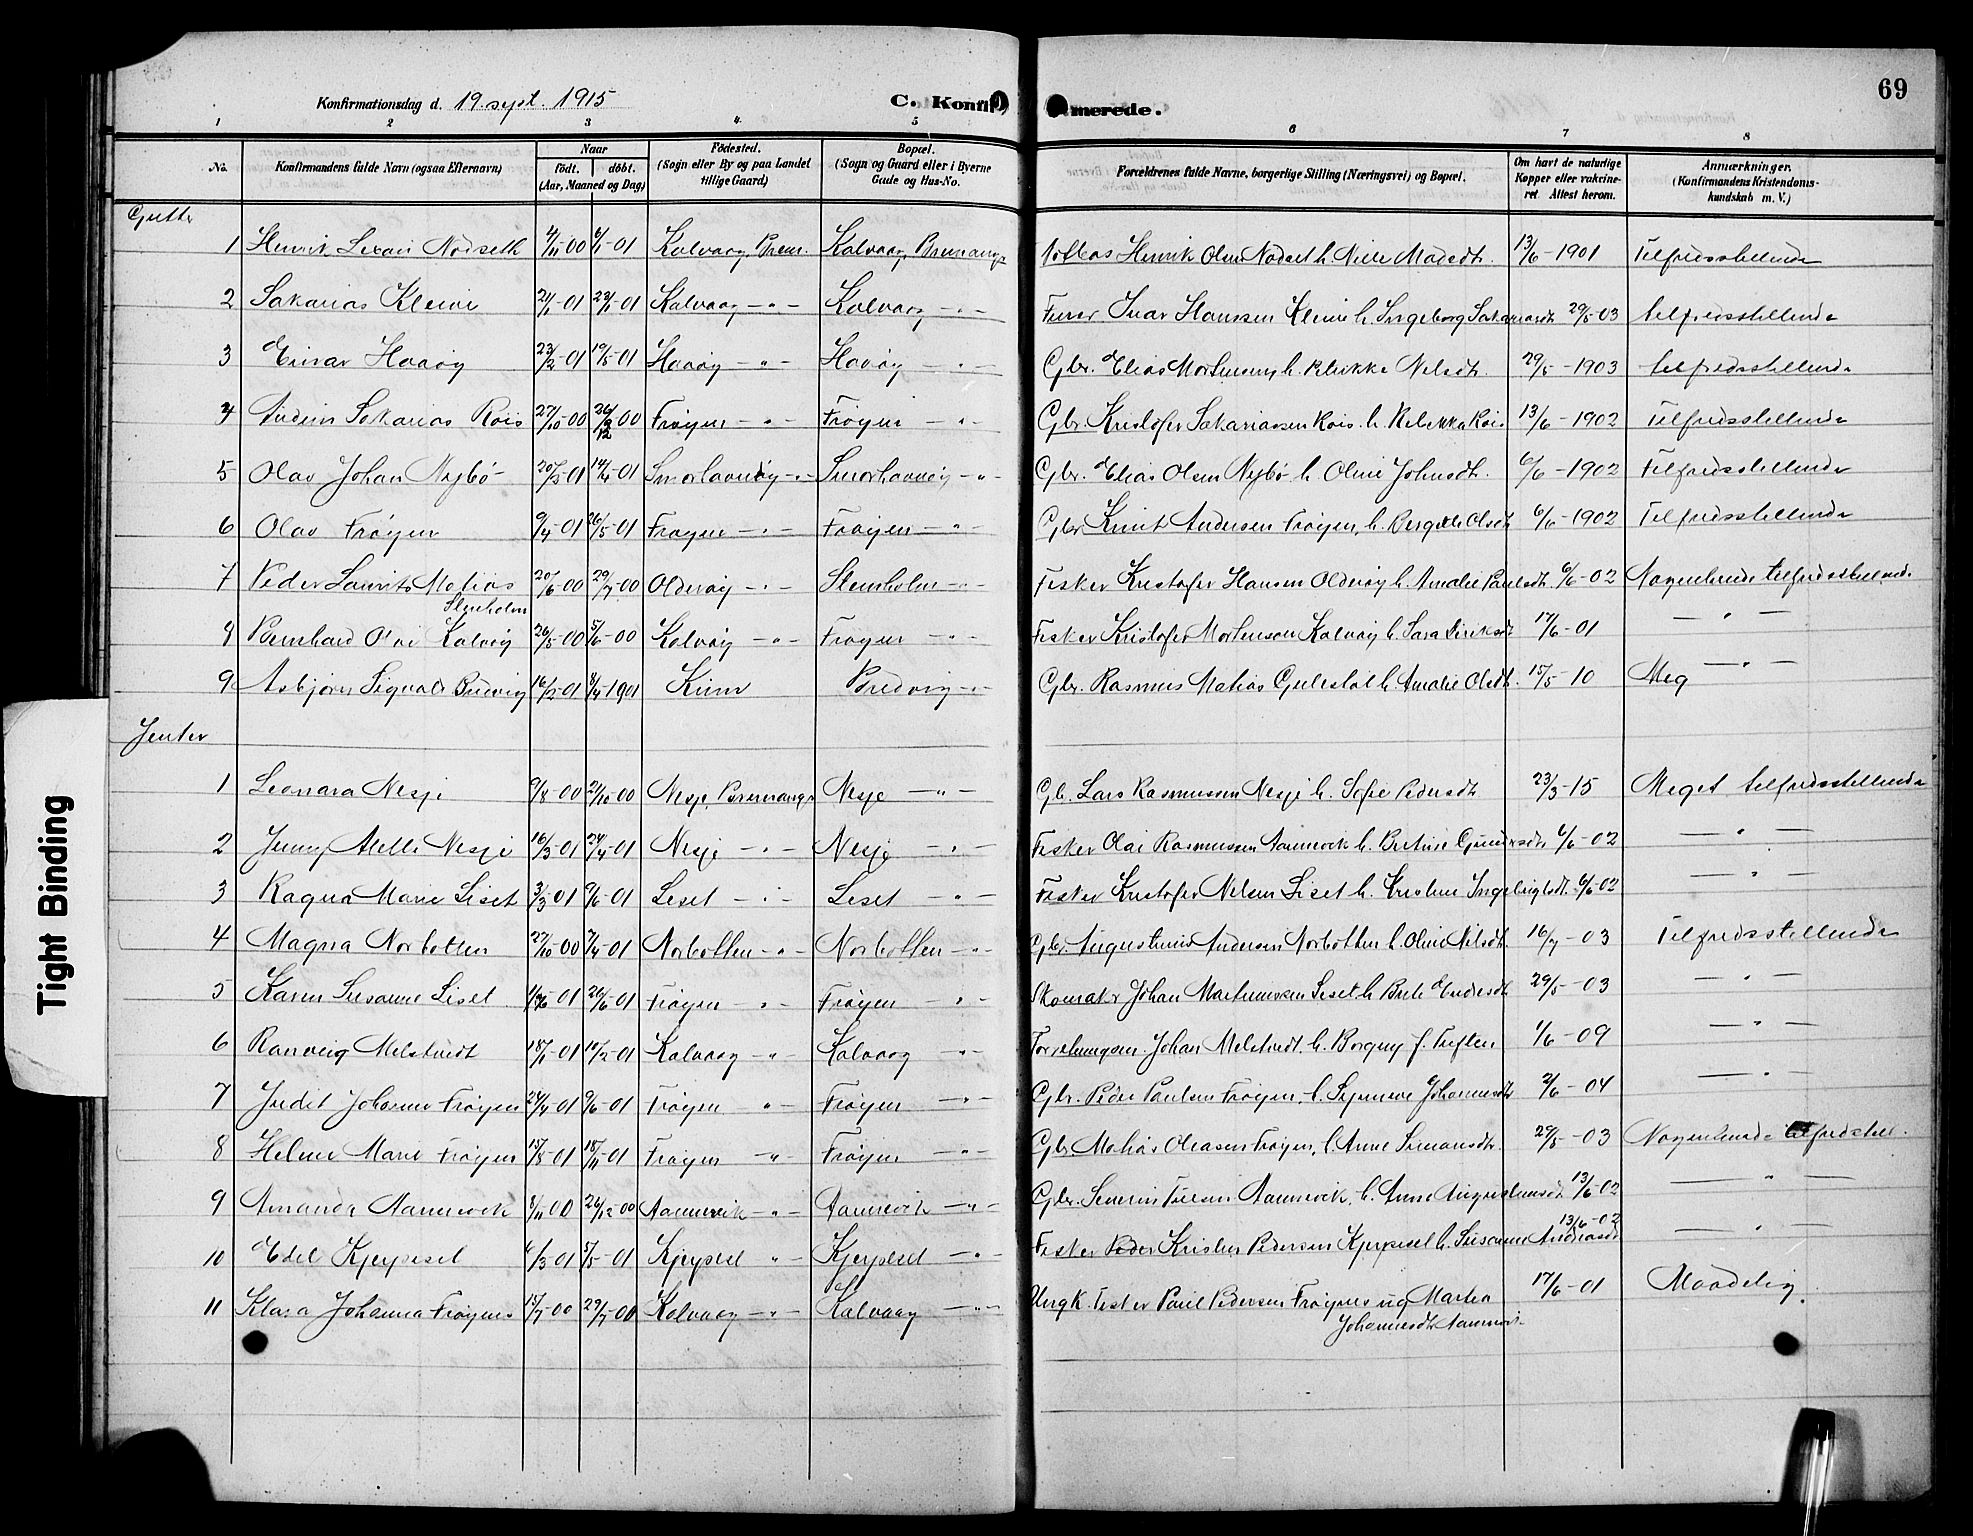 69
Konfirmationsdag d. 19. sept. 1915 C. Konfirmerede.
1 2 3 4 5 6 7 8
No. Konfirmandens fulde Navn (ogsaa Efternavn) Naar födt. döbt. (Aar, Maaned og Dag) Födested. (Sogn eller By og paa Landet tillige Gaard) Bopæl. (Sogn og Gaard eller i Byerne Gade og Hus-No. Forældrenes fulde Navne, borgerlige Stilling (Næringsvei) og Bopæl. Om havt de naturlige Kopper eller vakcineret Attest herom. Anmærkninger. (Konfirmandens Kristendomskundskab m. V.)
Gutter
1 Henrik Nødseth 4/11 00 6/1-01 Kalvaag, Brem. Kalvaag, Bremanger Henrik Olsen Nødset h. 13/6-1901 Tilfredsstillende
2 Sakarias Kleive 21/1-01 Kalvaag -"- Kalvaag -"- Ivar Hanssen Kleive h. Ingeborg 29/5-03 tilfredsstillende
3 Einar Havøy 23/2-01 19/5-01 Havøy -"- Havøy -"- Gbr. Elias Mortensen h. Nilsdt. 29/5-1903 tilfredsstillende
4 Sakarias Røis 27/10-00 Frøyen -"- Frøyen -"- Gbr. Kristofer Sakariassen Røis h. Rebekka Røis 13/6-1902 Tilfredsstillende
5 Olav Johan Nybø 20/3-01 14/4-01 Smørhavnøy -"- Smørhavnøy -"- Gbr. Elias Olsen Nybø h. Oline Johnsdt. 6/6-1902 Tilfredsstillende
6 Olav Frøyen 9/4-01 26/5-01 Frøyen -"- Frøyen -"- Gbr. Knut Andersen Frøyen, h. Bergitte Olsdt 6/6-1902 Tilfredsstillende
7 Peder Laurits Matias Stenholm 20/6-00 29/7-00 Olderøy -"- Stenholm -"- Fisker Kristofer Hansen Olderøy h. Amalie Paulsdt. 6/6-02 Nogenlunde tilfredsstillende
8 Bernhard Olai Kalvøy 26/5-00 5/6-00 Kalvøy -"- Frøyen -"- Fisker Kristofer Mortensen Kalvøy h. Sara 17/6-01 -"-
9 Asbjørn Sigvald Bredvig 16/2-01 8/4-1901 Kinn Bredvig -"- Gbr. Rasmus Matias h. Amalie Olsdt. 15/5-10 Meg -"-
Jenter
1 Leonara Nesje 9/8-00 21/10-00 Nesje, Bremanger Nesje -"- Gb. Lars Rasmussen Nesje h. Sofie Pedersdt 23/3-15 Meget tilfredsstillende
2 Jenny Nesje 16/3-01 24/4-01 Nesje -"- Nesje -"- Fisker Olai Rasmussen Aamnevik h. Bertine 6/6-02 -"-
3 Ragna Marie Liset 3/3 01 9/6-01 Liset -"- Liset -"- Fisker Kristofer Nilsen Liset h. Kristine 6/6-02 -"-
4 Magna Norbotten 27/10-00 7/4-01 Norbotten -"- Norbotten -"- Gbr. Augustinus Andersen Norbotten h. Oline Nilsdt 16/7-03 Tilfredsstillende
5 Karen Susanne Liset 26/5-01 Frøyen -"- Frøyen -"- Skomaker Johan Martinussen Liset h. Brite Endresdt 29/5-03 -"-
6 Ranveig Melstvedt 18/1-01 10/2-01 Kalvaag -"- Kalvaag -"- Johan Melstvedt h. Borgny f. Tuften 1/6-09 -"-
7 Judit Johanne Frøyen 24/4-01 9/6-01 Frøyen " - Frøyen -"- Gbr. Peder Paulsen Frøyen, h. Johannesdt 2/6-04 -"-
8 Helene Marie Frøyen 15/8-01 18/11-01 Frøyen -"- Frøyen -"- Gbr. Matias Frøyen, h. Anne Simonsdt. 29/5-03 Nogenlunde tilfredstill.
9 Amanda Aamnevik 8/11 00 26/12-00 Aamnevik -"- Aamnevik -"- Gbr. Severin Aamnevik, h. Anne Augustinusdt 13/6-02 -"-
10 Edel Kjerpeset 4/3 01 5/5-01 Kjerpeset " - Kjerpeset -"- Fisker Peder Kristian Pedersen Kjerpeset h. Susanne Andreasdt 13/6-02 -"-
11 Klara Johanna Frøynes 15/7-00 29/7-00 Kalvaag -"- Kalvaag -"- Ungk. Fisker Paul Pedersen Frøynes og Marta 17/6-01 Maadelig.
Johannesdt. Aamnevik
Tight Binding